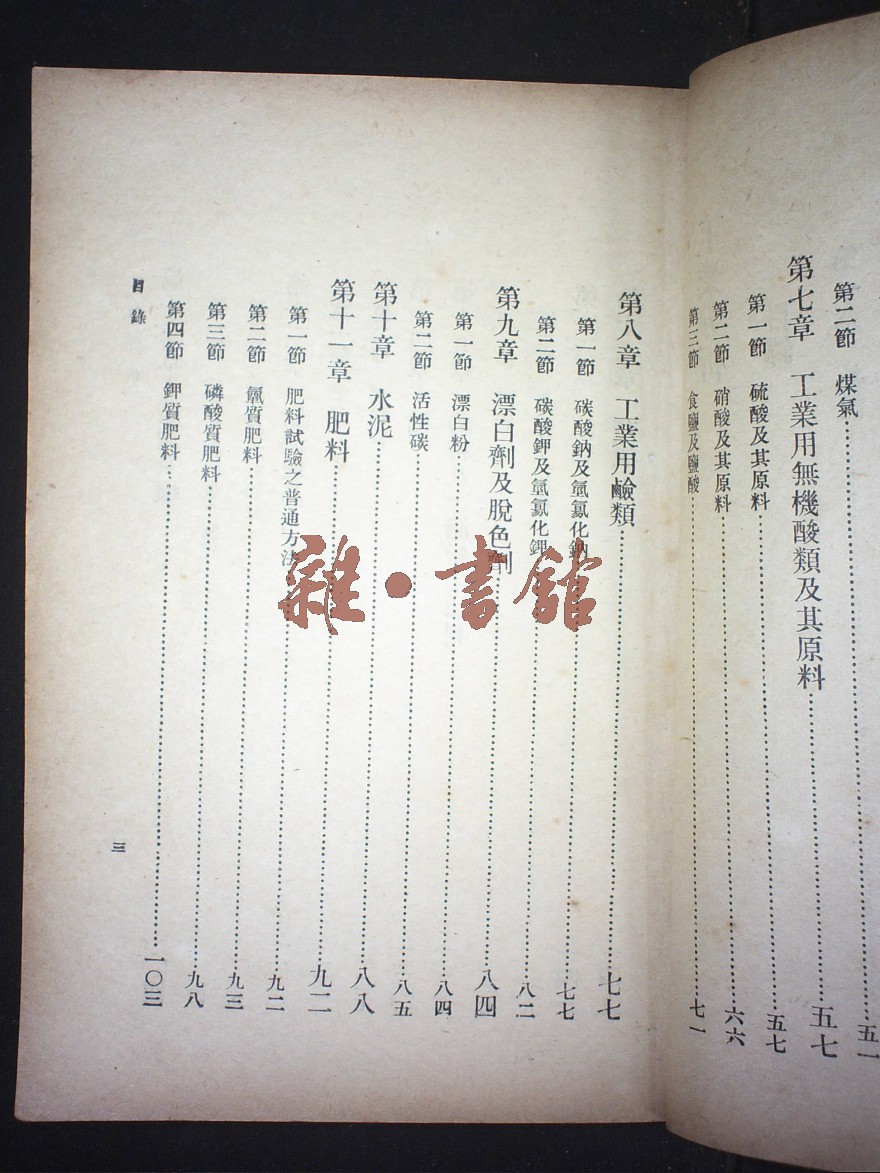 第二節　煤氣……五一
第七章　工業用無機酸類及其原料……五七
第一節　硫酸及其原料……五七
第二節　硝酸及其原料……六六
第三節　食鹽及鹽酸……七一
第八章　工業用鹼類……七七
第一節　碳酸鈉及氫氧化鈉……七七
第二節　碳酸鉀及氫氧化鉀……八二
第九章　漂白劑及脫色劑……八四
第一節　漂白粉……八四
第二節　活性碳……八五
第十章　水泥……八八
第十一章　肥料……九二
第一節　肥料試驗之普通方法……九二
第二節　氮質肥料……九三
第三節　磷酸質肥料……九八
第四節　鉀質肥料……一〇三
目錄
三
雜·書館